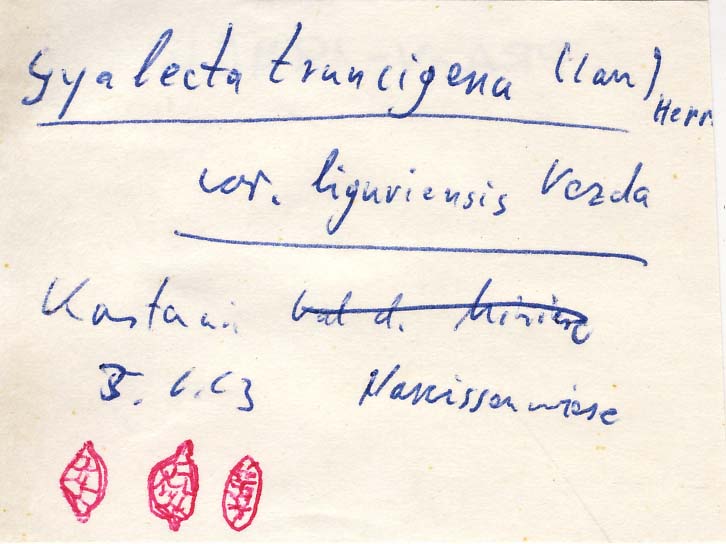 Gyalecta truncigena (lau) Herr.
var. liguriensis Vezda
Kastani. Val d. Miniere
5. 6. 63 Narcissenwiese